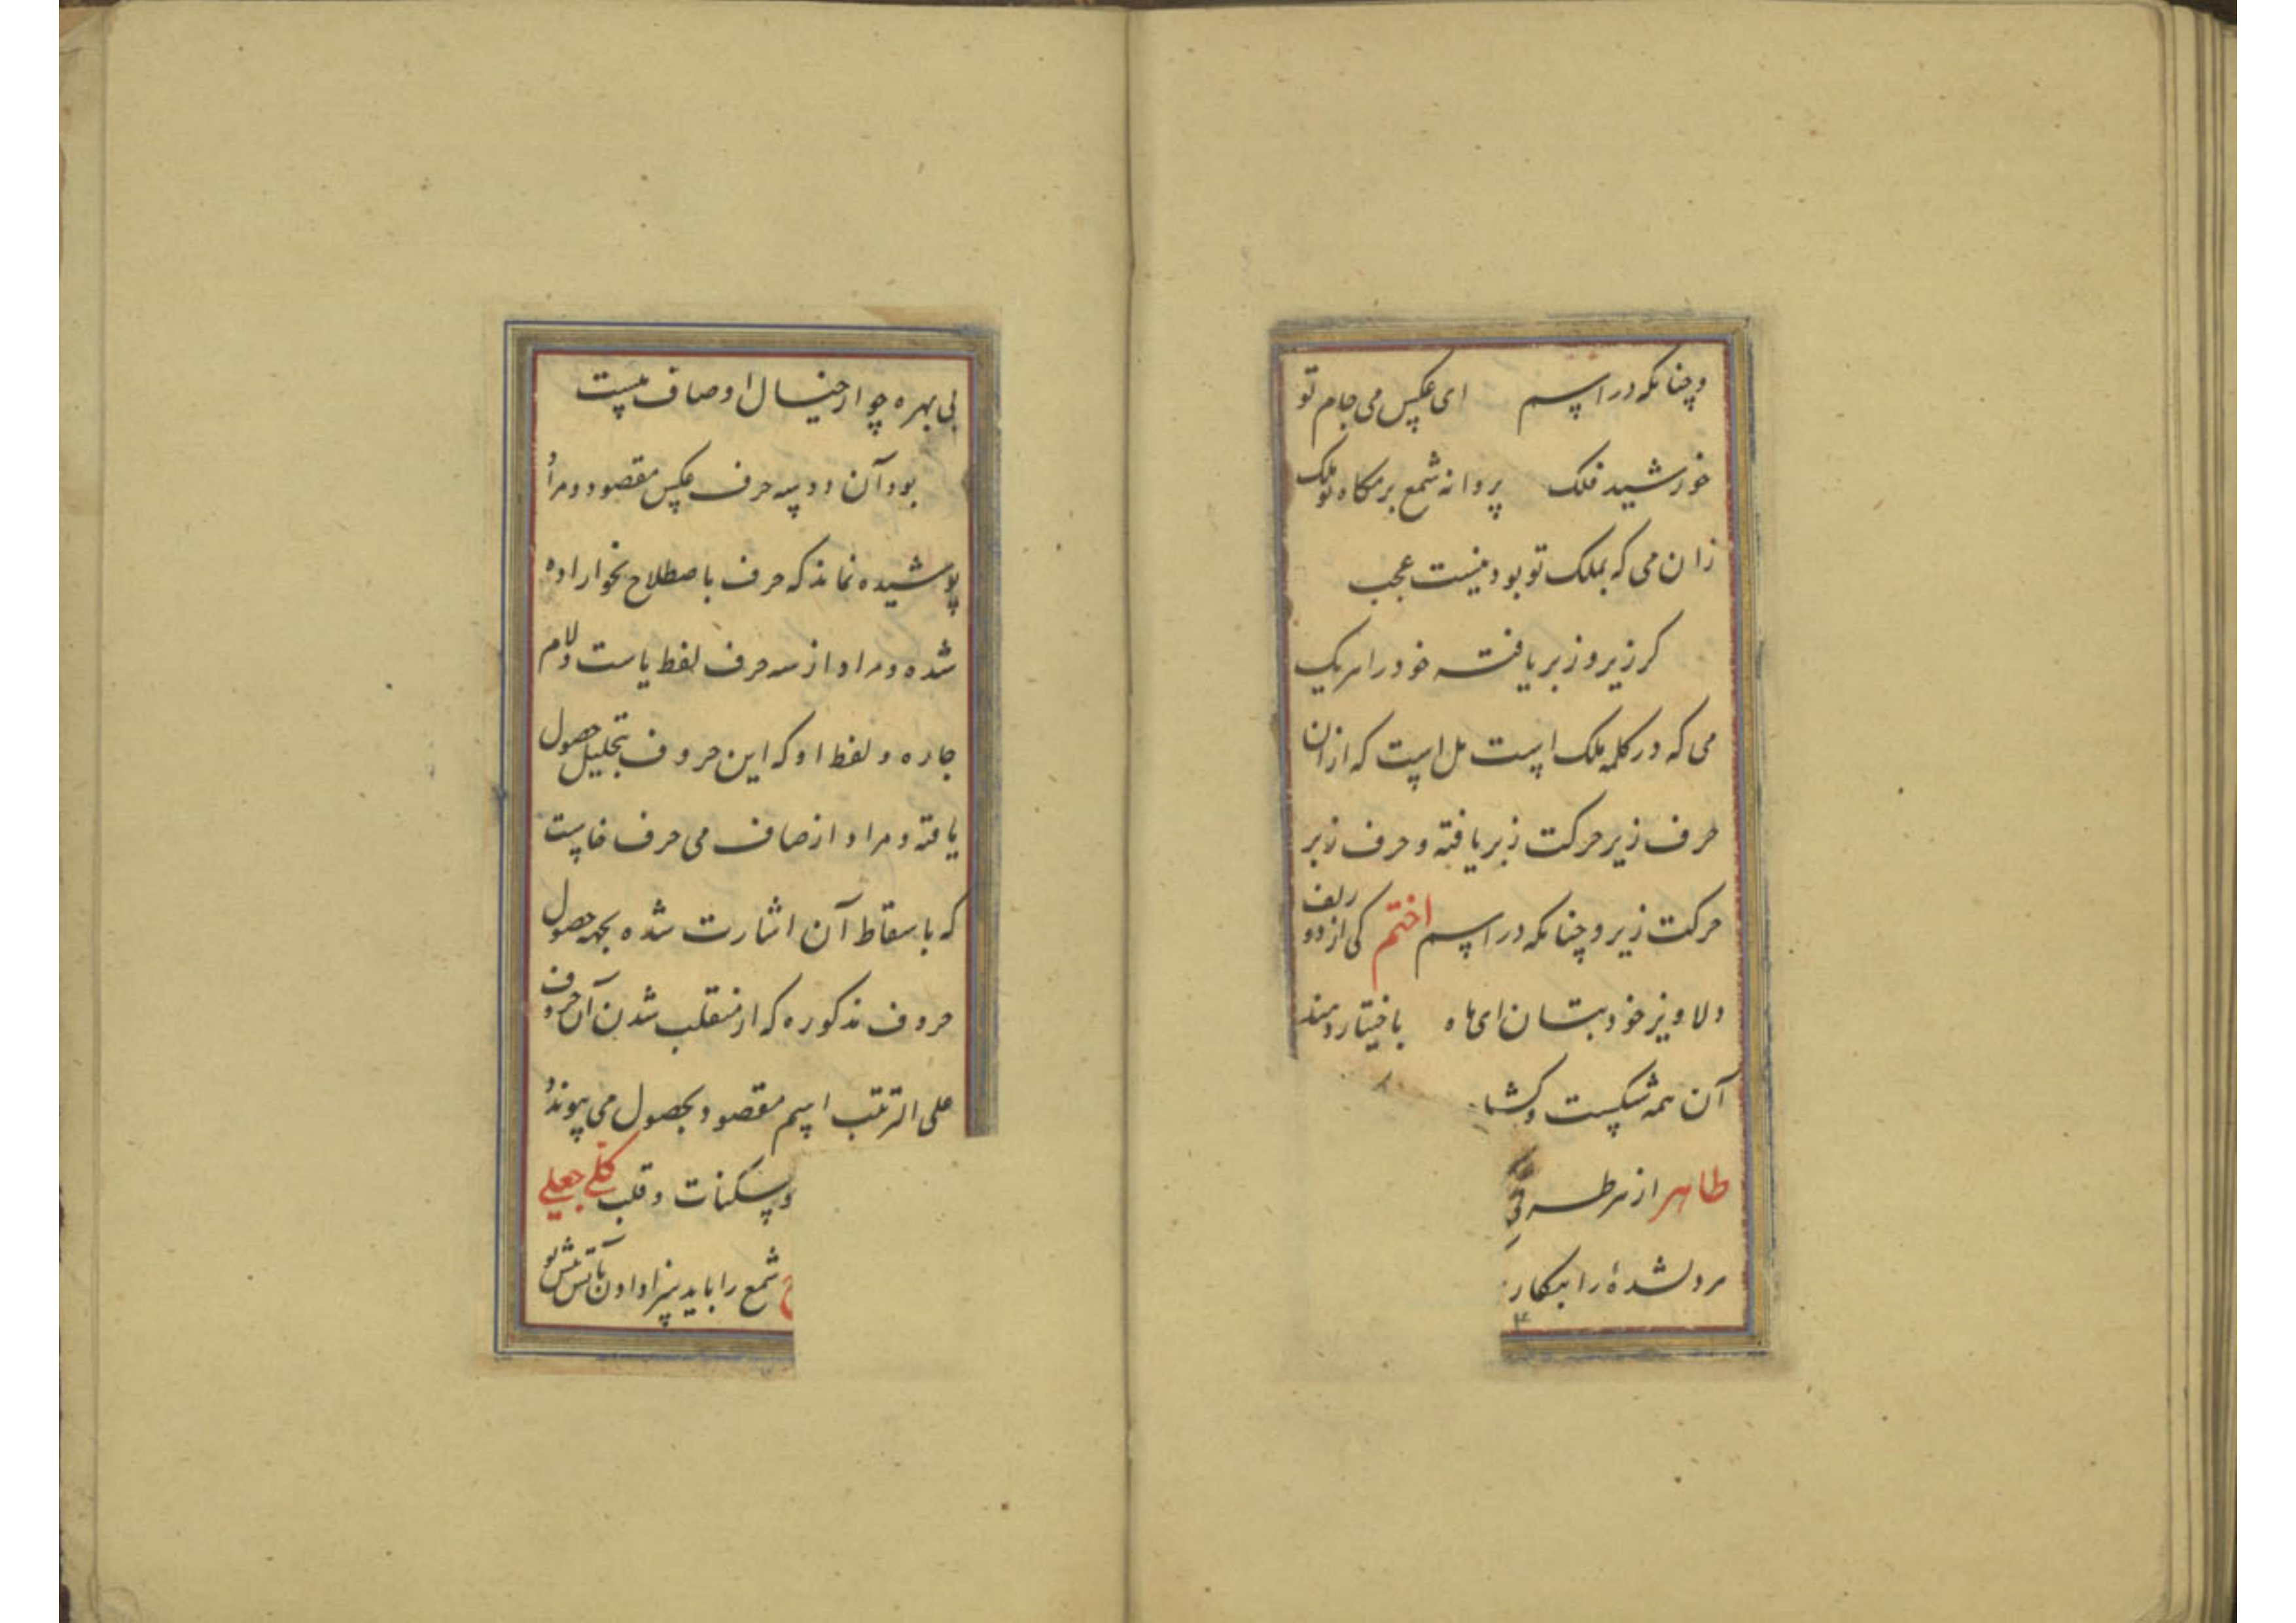 و چنانکه در اسم ای عکس می جام تو
خورشید فلک پروانه شمع بزمگاه تو ملک
زان می که بملک تو بود نیست عجب
کر زیر و زبر یافته خود را هر یک
می که در کلمه ملک است مل است که ازان
حرف زیر حرکت زبر یافته و حرف زبر
حرکت زیر و چنانکه در اسم اختم کی از دو زلف
دلاویز خود بتان ای ماه باختیار دهند
آن همه شکست و کشا
طاهر از هر طرفی
مر دلشدهٔ را بیکار
بی بهره چو از خیال اوصاف نیست
بود آن دو سه حرف عکس مقصود و مراد
پوشیده نماند که حرف باصطلاح نحو اراده
شده و مراد از سه حرف لفظ یاست و لام
جاره و لفظ او که این حروف بتحلیل حصول
یافته و مراد از صاف می حرف فاست
که باسقاط آن اشارت شده بجهه حصول
حروف مذکوره که از منقلب شدن آن حروف
علی الترتیب اسم مقصود بحصول می پیوندد
و سکنات و قلب کلی جعلی
شمع را باید سزا دادن بآتش پیش تو